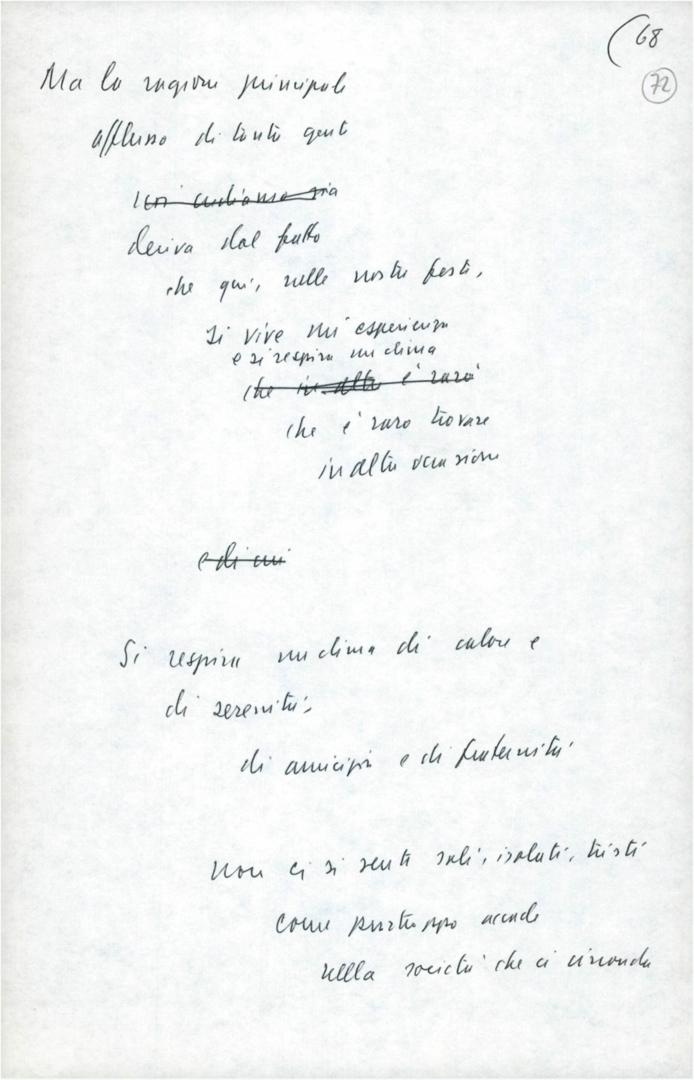 (68
72
Ma la ragione principale
afflusso di tanta gente
deriva dal fatto
che qui, nelle nostre feste,
si vive un'esperienza
e si respira un clima
che in altre è raro
che è raro trovare
in altre occasioni
e di cui
Si respira un clima di calore e
di serenità,
di amicizia e di fraternità
Non ci si sente soli, isolati, tristi
come purtroppo accade
nella società che ci circonda